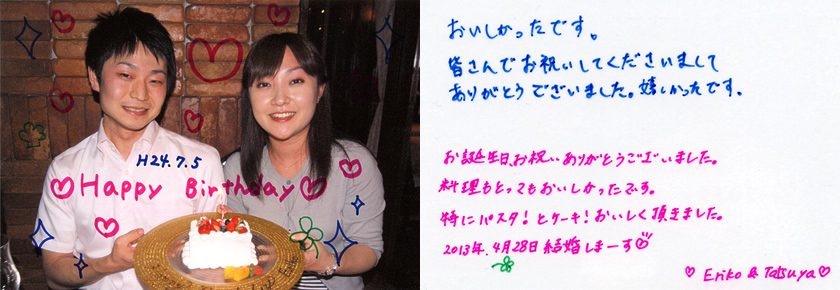 H24.7.5
Happy Birthday
おいしかったです。
皆さんでお祝いしてくださいまして
ありがとうございました。嬉しかったです。
お誕生日、お祝いありがとうございました。
料理もとってもおいしかったです。
特にパスタ!とケーキ!おいしく頂きました。
2013年.4月28日結婚しまーす
Eriko & Tatsuya